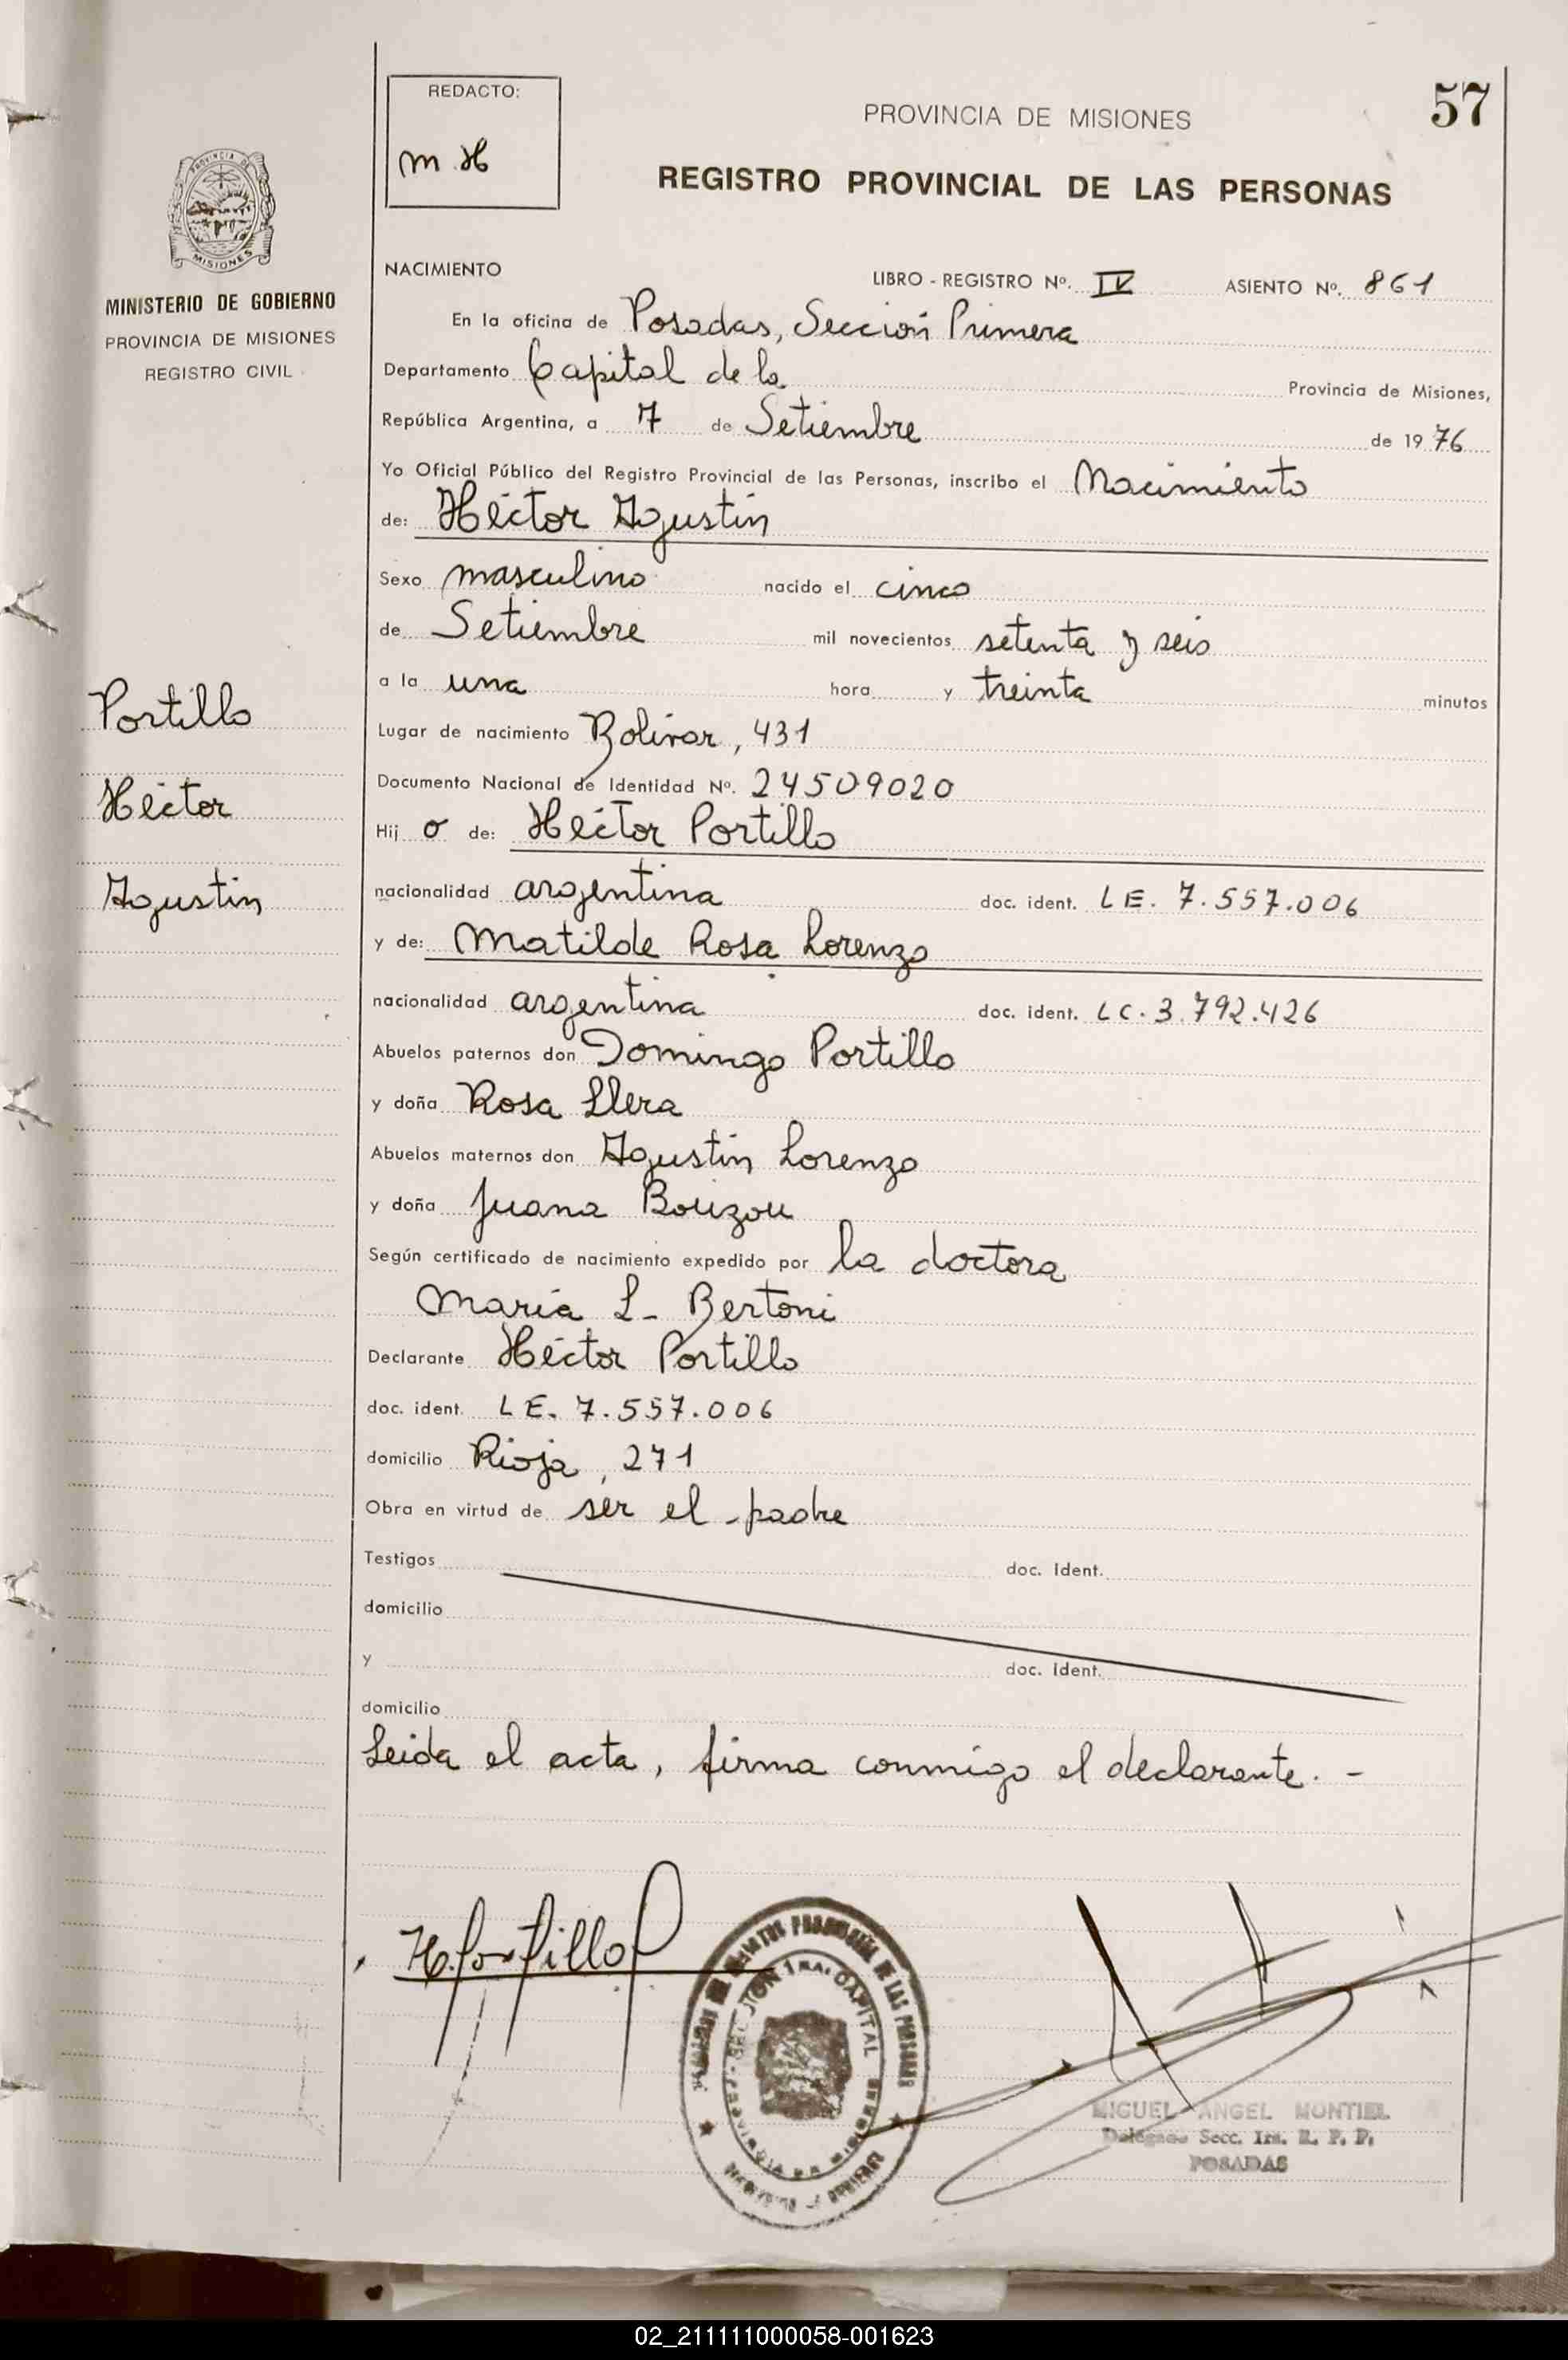 REDACTO:
m.H
PROVINCIA DE MISIONES
57
REGISTRO PROVINCIAL DE LAS PERSONAS
PROVINCIA DE
MISIONES
MINISTERIO DE GOBIERNO
PROVINCIA DE MISIONES
REGISTRO CIVIL
NACIMIENTO LIBRO - REGISTRO Nº. IV ASIENTO Nº. 861
En la oficina de Posadas, Sección Primera
Departamento Capital de la Provincia de Misiones,
República Argentina, a 7 de Setiembre de 1976
Yo Oficial Público del Registro Provincial de las Personas, inscribo el Nacimiento
de: Héctor Agustín
Sexo masculino nacido el cinco
de Setiembre mil novecientos setenta y seis
a la una hora y treinta minutos
Portillo
Lugar de nacimiento Bolívar, 431
Documento Nacional de Identidad Nº. 24509020
Héctor
Hijo de: Héctor Portillo
Agustín
nacionalidad argentina doc. ident. LE. 7.557.006
y de: Matilde Rosa Lorenzo
nacionalidad argentina doc. ident. LC. 3.792.426
Abuelos paternos don Domingo Portillo
y doña Rosa Llera
Abuelos maternos don Agustín Lorenzo
y doña Juana Bouzou
Según certificado de nacimiento expedido por la doctora
María L- Bertoni
Declarante Héctor Portillo
doc. ident. LE. 7.557.006
domicilio Rioja, 271
Obra en virtud de ser el padre
Testigos doc. Ident.
domicilio
y doc. Ident.
domicilio
Leida el acta, firma conmigo el declarante. -
H. Portillo
SECCION 1ra. CAPITAL
MIGUEL ANGEL MONTIEL
Delegado Secc. 1ra. R. P. P.
POSADAS
02_211111000058-001623